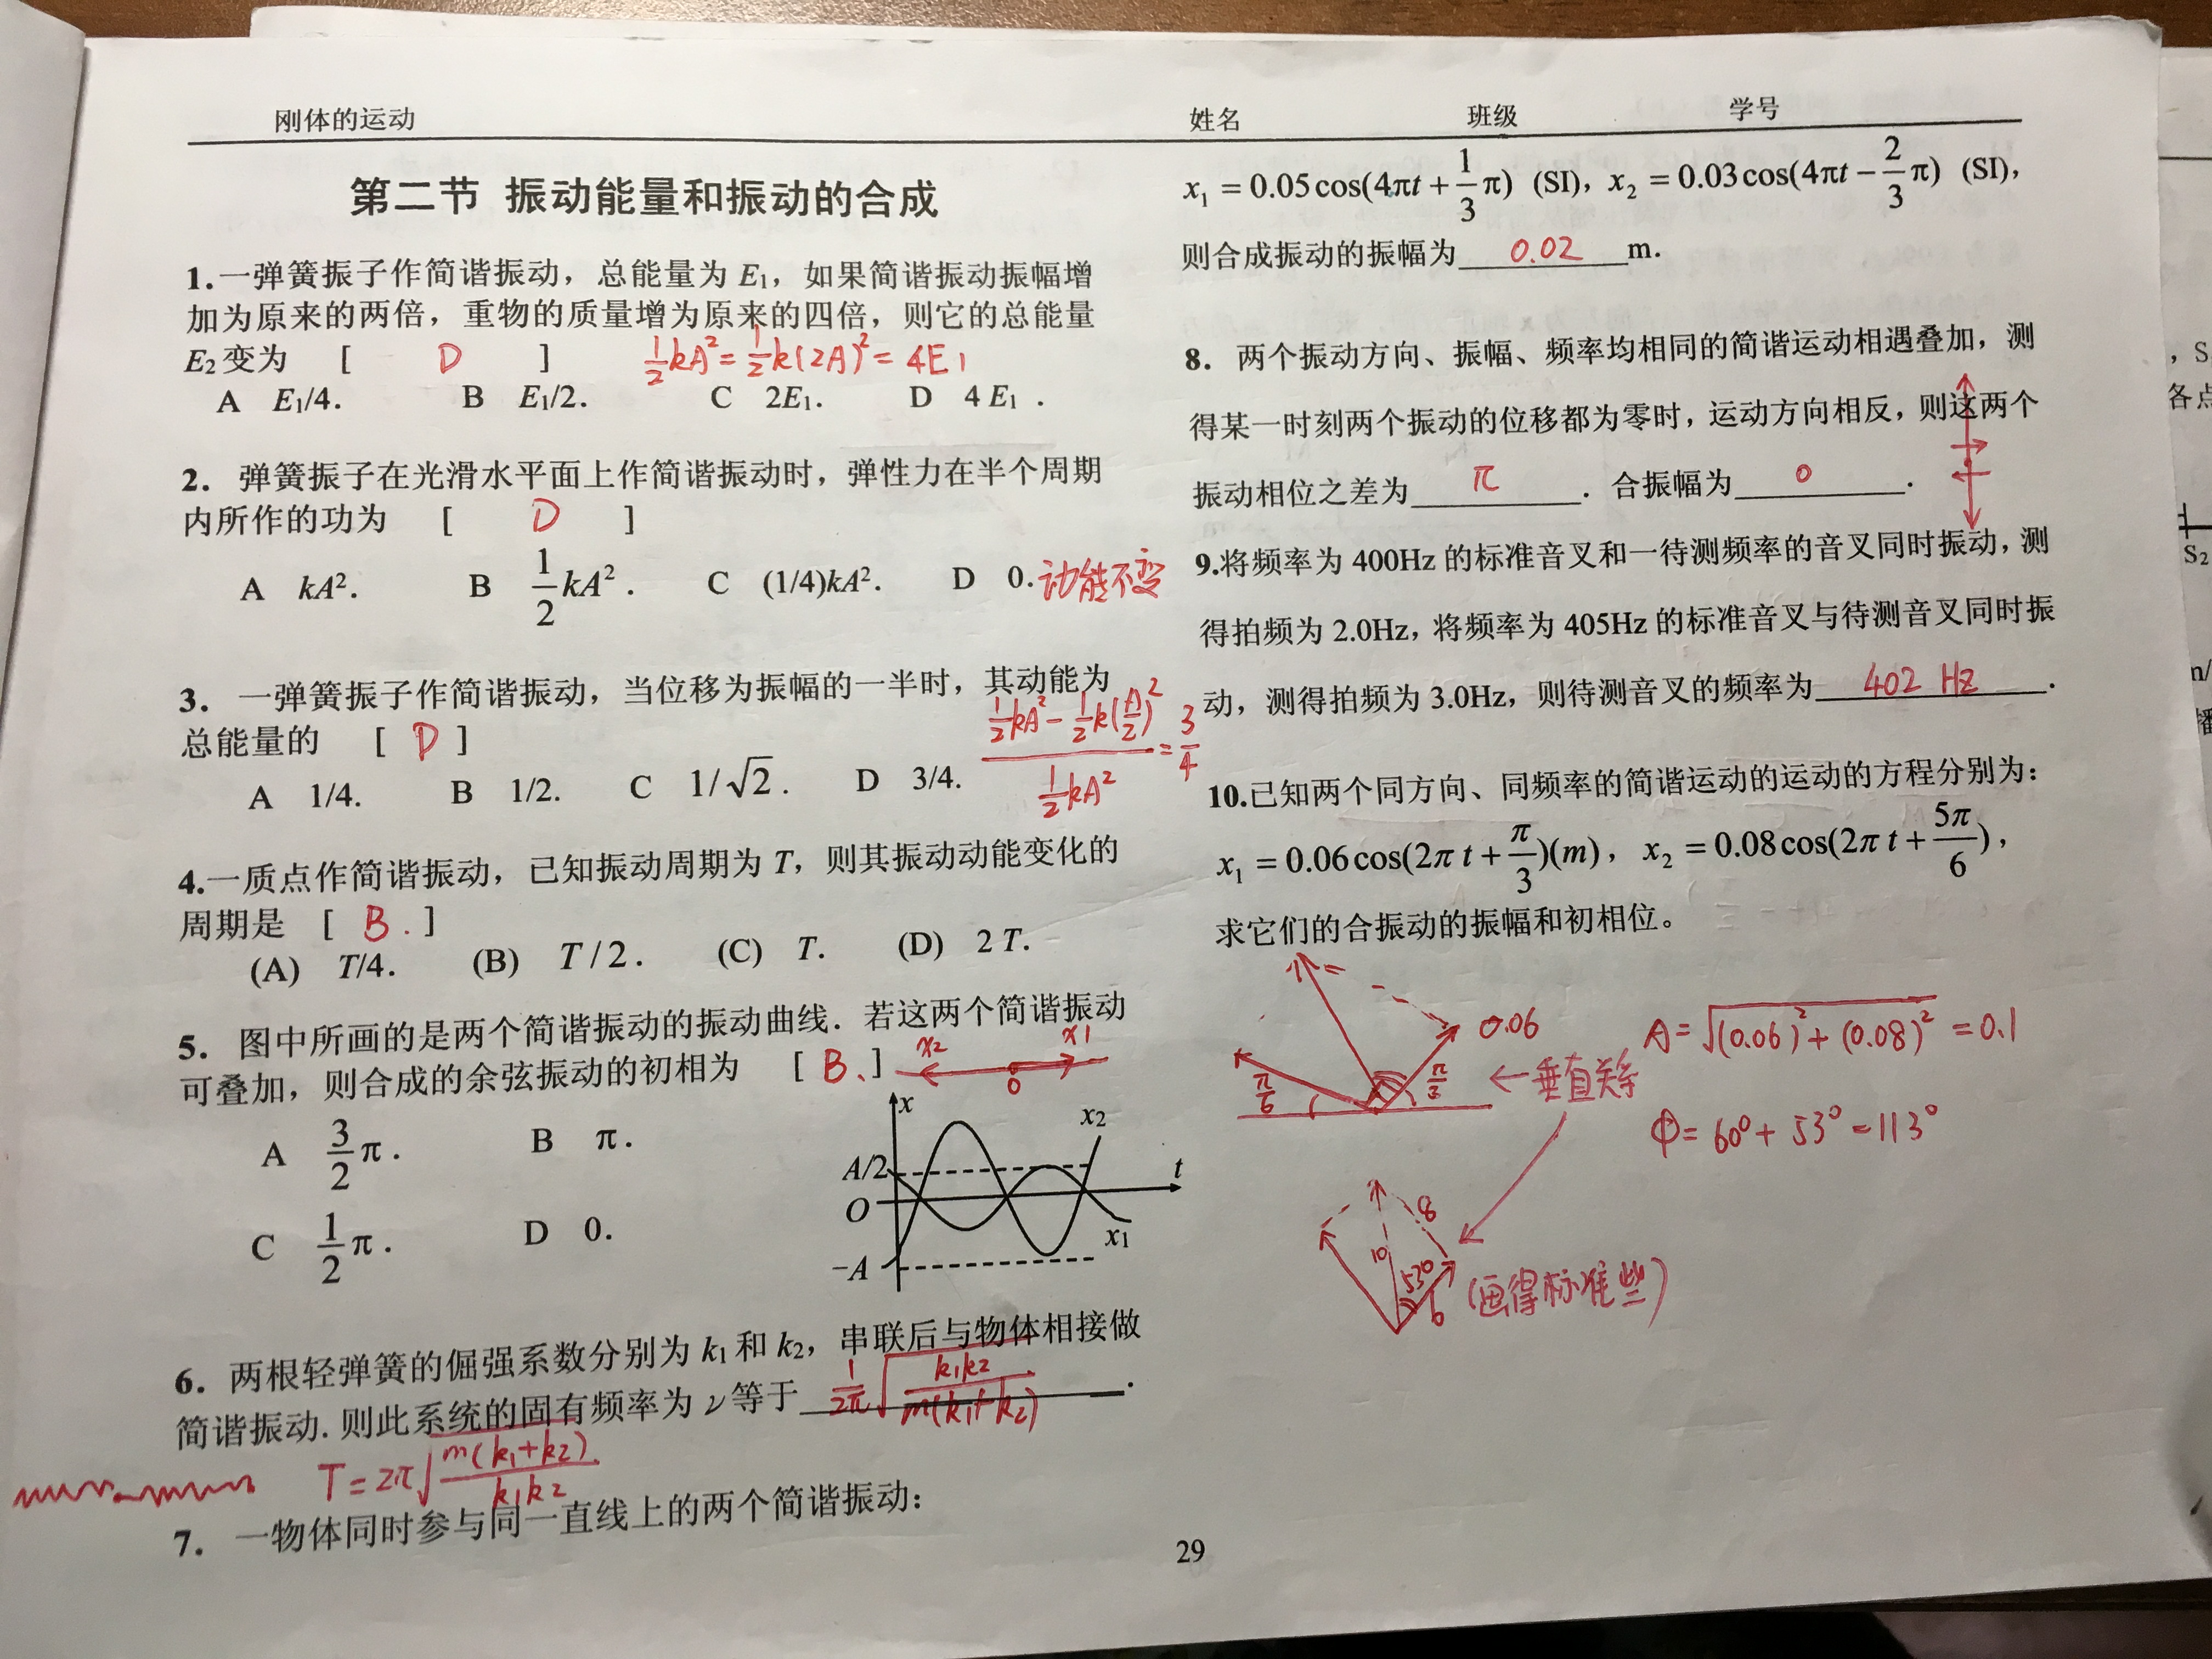 刚体的运动 姓名 班级 学号
第二节 振动能量和振动的合成
1.一弹簧振子作简谐振动，总能量为 E₁，如果简谐振动振幅增
加为原来的两倍，重物的质量增为原来的四倍，则它的总能量
E₂变为 [ D ] ½kA² = ½k(2A)² = 4E1
A E₁/4. B E₁/2. C 2E₁. D 4 E₁ .
2. 弹簧振子在光滑水平面上作简谐振动时，弹性力在半个周期
内所作的功为 [ D ]
A kA². B ½kA². C (1/4)kA². D 0. 动能不变
3. 一弹簧振子作简谐振动，当位移为振幅的一半时，其动能为
总能量的 [ D ] (½kA² − ½k(A/2)²)/(½kA²) = 3/4
A 1/4. B 1/2. C 1/√2 . D 3/4.
4.一质点作简谐振动，已知振动周期为 T，则其振动动能变化的
周期是 [ B . ]
(A) T/4. (B) T/2 . (C) T. (D) 2 T.
5. 图中所画的是两个简谐振动的振动曲线．若这两个简谐振动
可叠加，则合成的余弦振动的初相为 [ B、] x2 0 x1
A 3/2 π . B π .
C 1/2 π . D 0.
x
A/2
O
−A
x₂
x₁
t
6. 两根轻弹簧的倔强系数分别为 k₁ 和 k₂，串联后与物体相接做
简谐振动. 则此系统的固有频率为 ν 等于 1/2π √(k1k2/m(k1+k2)) .
T = 2π √(m(k1+k2)/k1k2)
7. 一物体同时参与同一直线上的两个简谐振动：
x₁ = 0.05cos(4πt + 1/3 π) (SI), x₂ = 0.03cos(4πt − 2/3 π) (SI),
则合成振动的振幅为 0.02 m.
8. 两个振动方向、振幅、频率均相同的简谐运动相遇叠加，测
得某一时刻两个振动的位移都为零时，运动方向相反，则这两个
振动相位之差为 π . 合振幅为 0 .
9.将频率为 400Hz 的标准音叉和一待测频率的音叉同时振动，测
得拍频为 2.0Hz，将频率为 405Hz 的标准音叉与待测音叉同时振
动，测得拍频为 3.0Hz，则待测音叉的频率为 402 Hz .
10.已知两个同方向、同频率的简谐运动的运动的方程分别为：
x₁ = 0.06cos(2π t + π/3)(m)，x₂ = 0.08cos(2π t + 5π/6)，
求它们的合振动的振幅和初相位。
0.06 A = √((0.06)² + (0.08)²) = 0.1
π/6 π/3 ← 垂直关系
Φ = 60° + 53° = 113°
8 10 53° 6
(画得标准些)
29